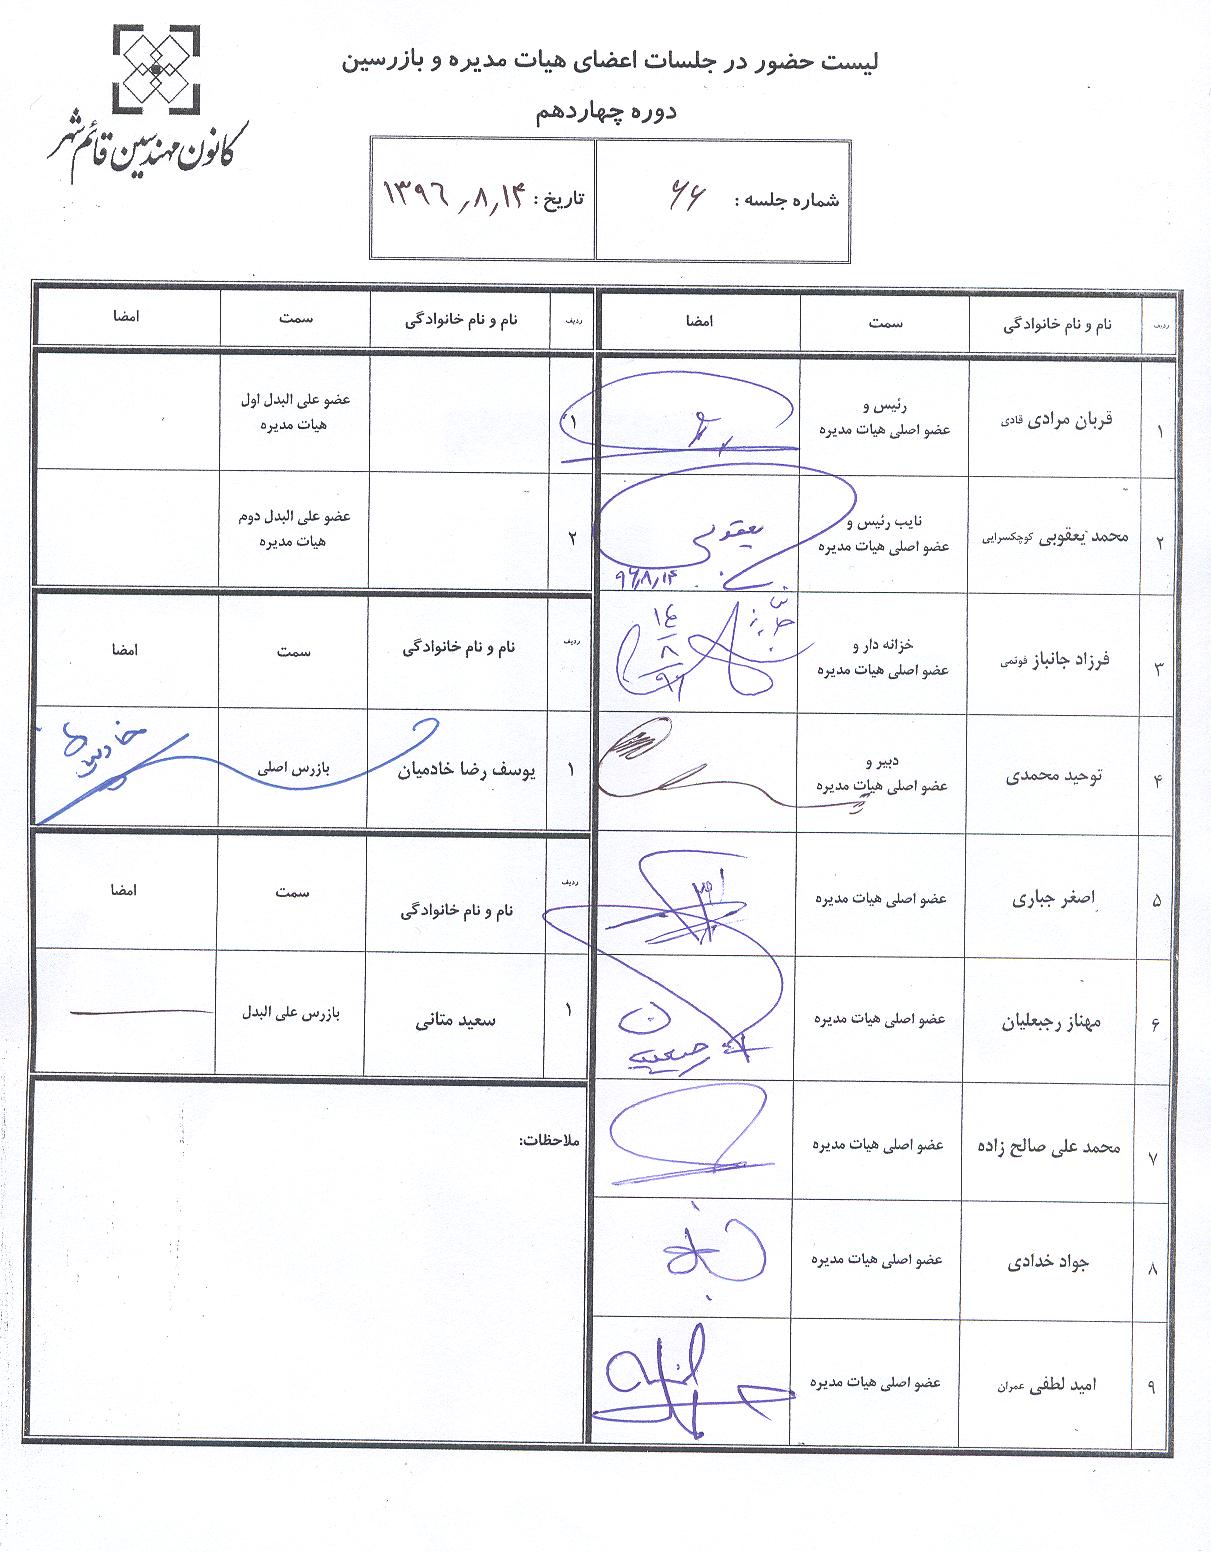 کانون مهندسین قائم شهر
لیست حضور در جلسات اعضای هیات مدیره و بازرسین
دوره چهاردهم
شماره جلسه : ۶۶
تاریخ : ۱۳۹۶٫۸٫۱۴
ردیف نام و نام خانوادگی سمت امضا
۱ قربان مرادی قادی رئیس و
عضو اصلی هیات مدیره
۲ محمد یعقوبی کوچکسرایی نایب رئیس و
عضو اصلی هیات مدیره یعقوبی
۹۶٫۸٫۱۴
۳ فرزاد جانباز فوتمی خزانه دار و
عضو اصلی هیات مدیره
۴ توحید محمدی دبیر و
عضو اصلی هیات مدیره
۵ اصغر جباری عضو اصلی هیات مدیره
۶ مهناز رجبعلیان عضو اصلی هیات مدیره
۷ محمد علی صالح زاده عضو اصلی هیات مدیره
۸ جواد خدادی عضو اصلی هیات مدیره
۹ امید لطفی عمران عضو اصلی هیات مدیره
ردیف نام و نام خانوادگی سمت امضا
۱ عضو علی البدل اول
هیات مدیره
۲ عضو علی البدل دوم
هیات مدیره
ردیف نام و نام خانوادگی سمت امضا
۱ یوسف رضا خادمیان بازرس اصلی
ردیف نام و نام خانوادگی سمت امضا
۱ سعید متانی بازرس علی البدل
ملاحظات: